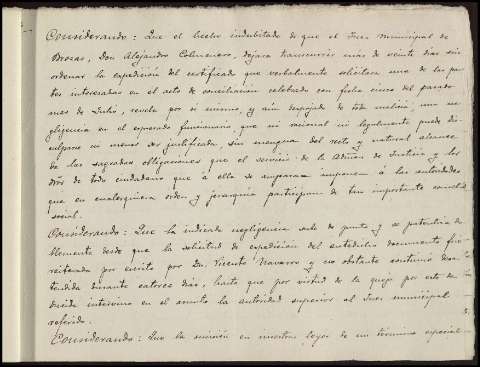 Considerando: Que el hecho indubitado de que el Juez Municipal de
Brozas, Don Alejandro Colmenero, dejara transcurrir más de veinte dias sin
ordenar la expedición del certificado que verbalmente solicitara una de las par
tes interesadas en el acto de conciliación celebrado con fecha cinco del pasado
mes de Julio, revela por si mismo, y aún despojado de toda malicia, una ne
gligencia en el expresado funcionario, que ni racional ni legalmente puede dis
culparse ni menos ser justificada, sin mengua del recto y natural alcance
de las sagradas obligaciones que el servicio de la Admon de Justicia y los
dros de todo ciudadano que á ella se amparan imponen á las autoridades
que en cualesquiera orden y jerarquía participan de tan importante
Considerando: Que la indicada negligencia sube de punto y se patentiza do
blemente desde que la solicitud de expedición del antedicho documento fué
reiterada por escrito por Dn. Vicente Navarro y no obstante continuó desa
tendida durante catorce dias, hasta que por virtud de la queja por este
ducida intervino en el asunto la autoridad superior al Juez municipal
referido.
Considerando: Que la omisión en nuestras leyes de un término especial